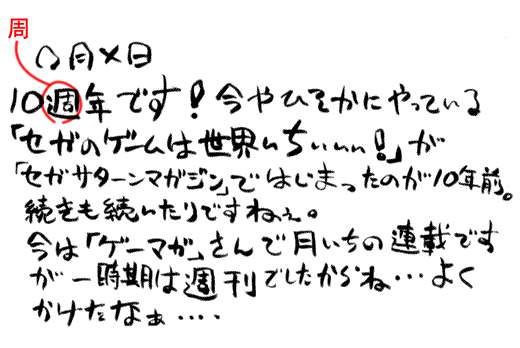 周
○月×日
10週年です！今やひそかにやっている
「セガのゲームは世界いちぃぃぃ！」が
「セガサターンマガジン」ではじまったのが10年前。
続きも続いたりですねぇ。
今は「ゲーマガ」さんで月いちの連載です
が一時期は週刊でしたからね…よく
かけたなぁ‥‥